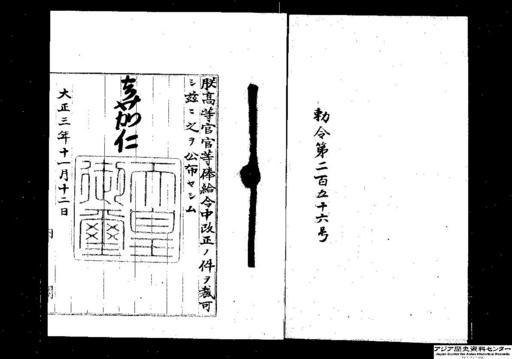 勅令第二百五十六号
朕高等官官等俸給令中改正ノ件ヲ裁可
シ茲ニ之ヲ公布セシム
嘉仁
天皇
御璽
大正三年十一月十二日
アジア歴史資料センター
Japan Center for Asian Historical Records